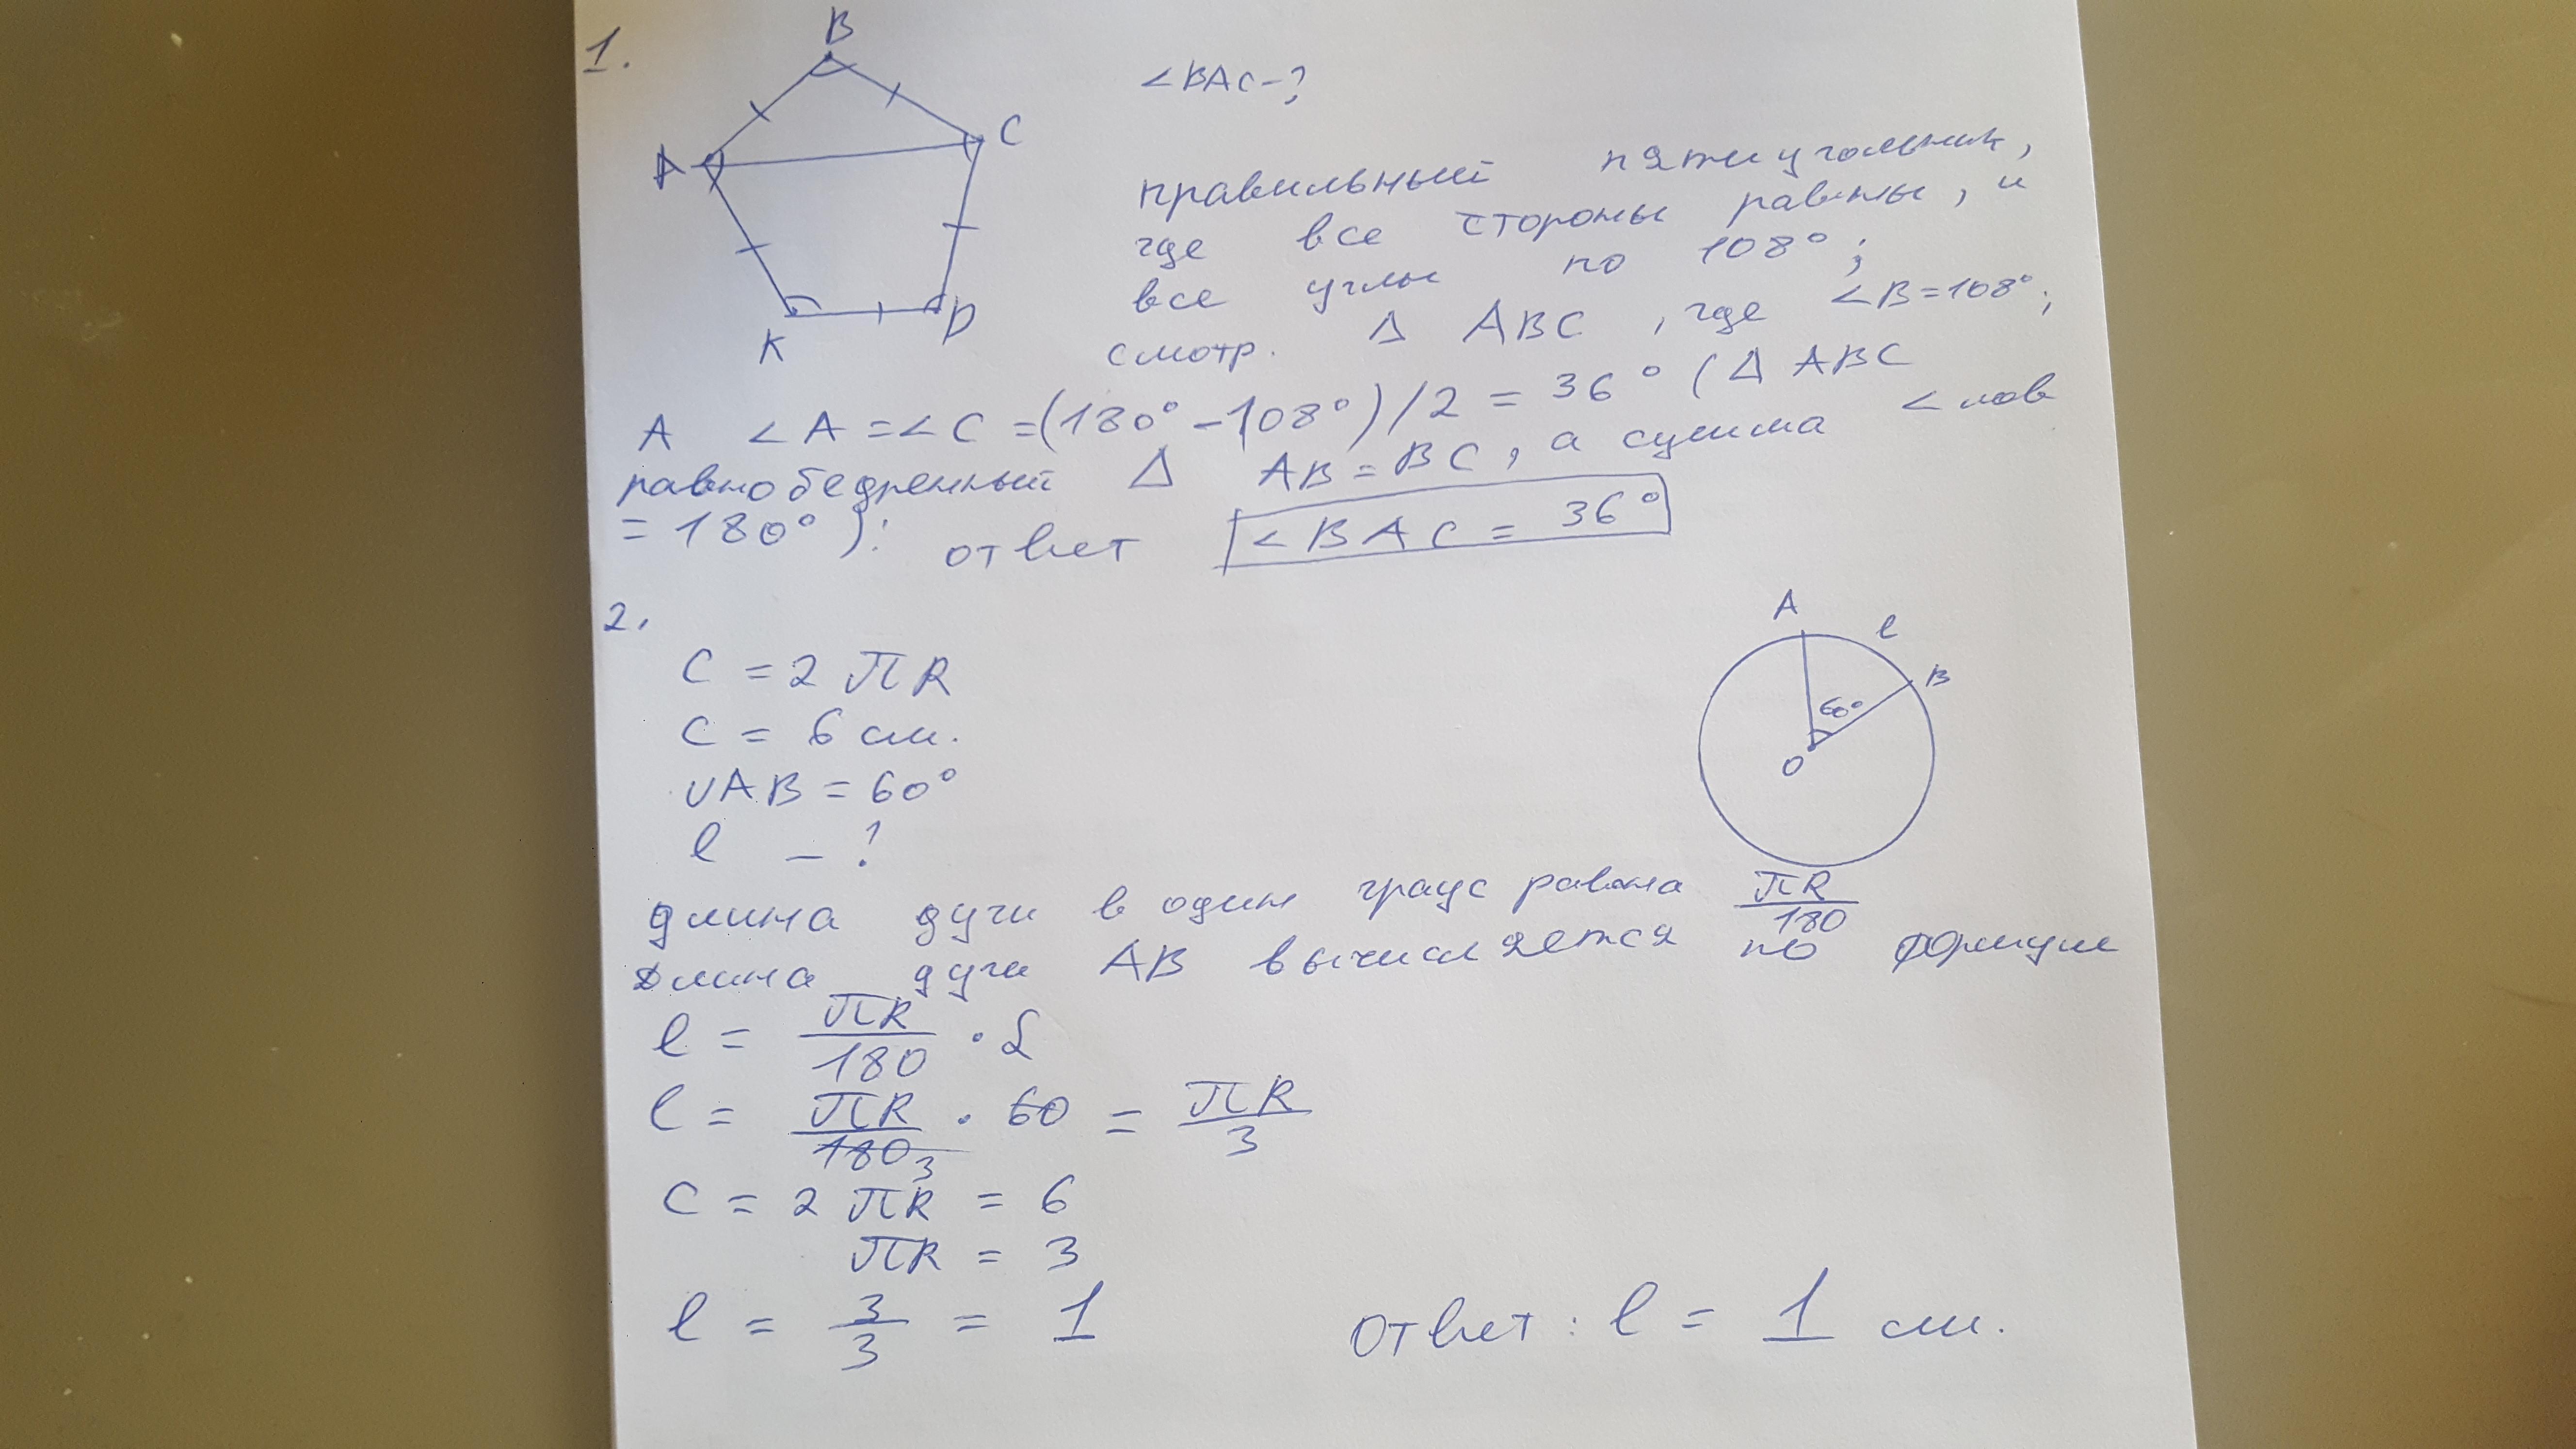 1.
B
A
C
K
D
∠BAC-?
правильный пятиугольник,
где все стороны равны, и
все углы по 108°;
смотр. Δ ABC, где ∠B=108°;
А ∠A=∠C=(180°-108°)/2 = 36° (Δ ABC
равнобедренный Δ AB=BC, а сумма ∠лов
=180°): ответ ∠BAC = 36°
2.
A
l
B
60°
O
C = 2πR
C = 6 см.
∪AB = 60°
l - ?
длина дуги в один граус равна πR/180
длина дуги AB вычисляется по формуле
l = πR/180 · α
l = πR/180 3 · 60 = πR/3
C = 2πR = 6
πR = 3
l = 3/3 = 1
Ответ: l = 1 см.